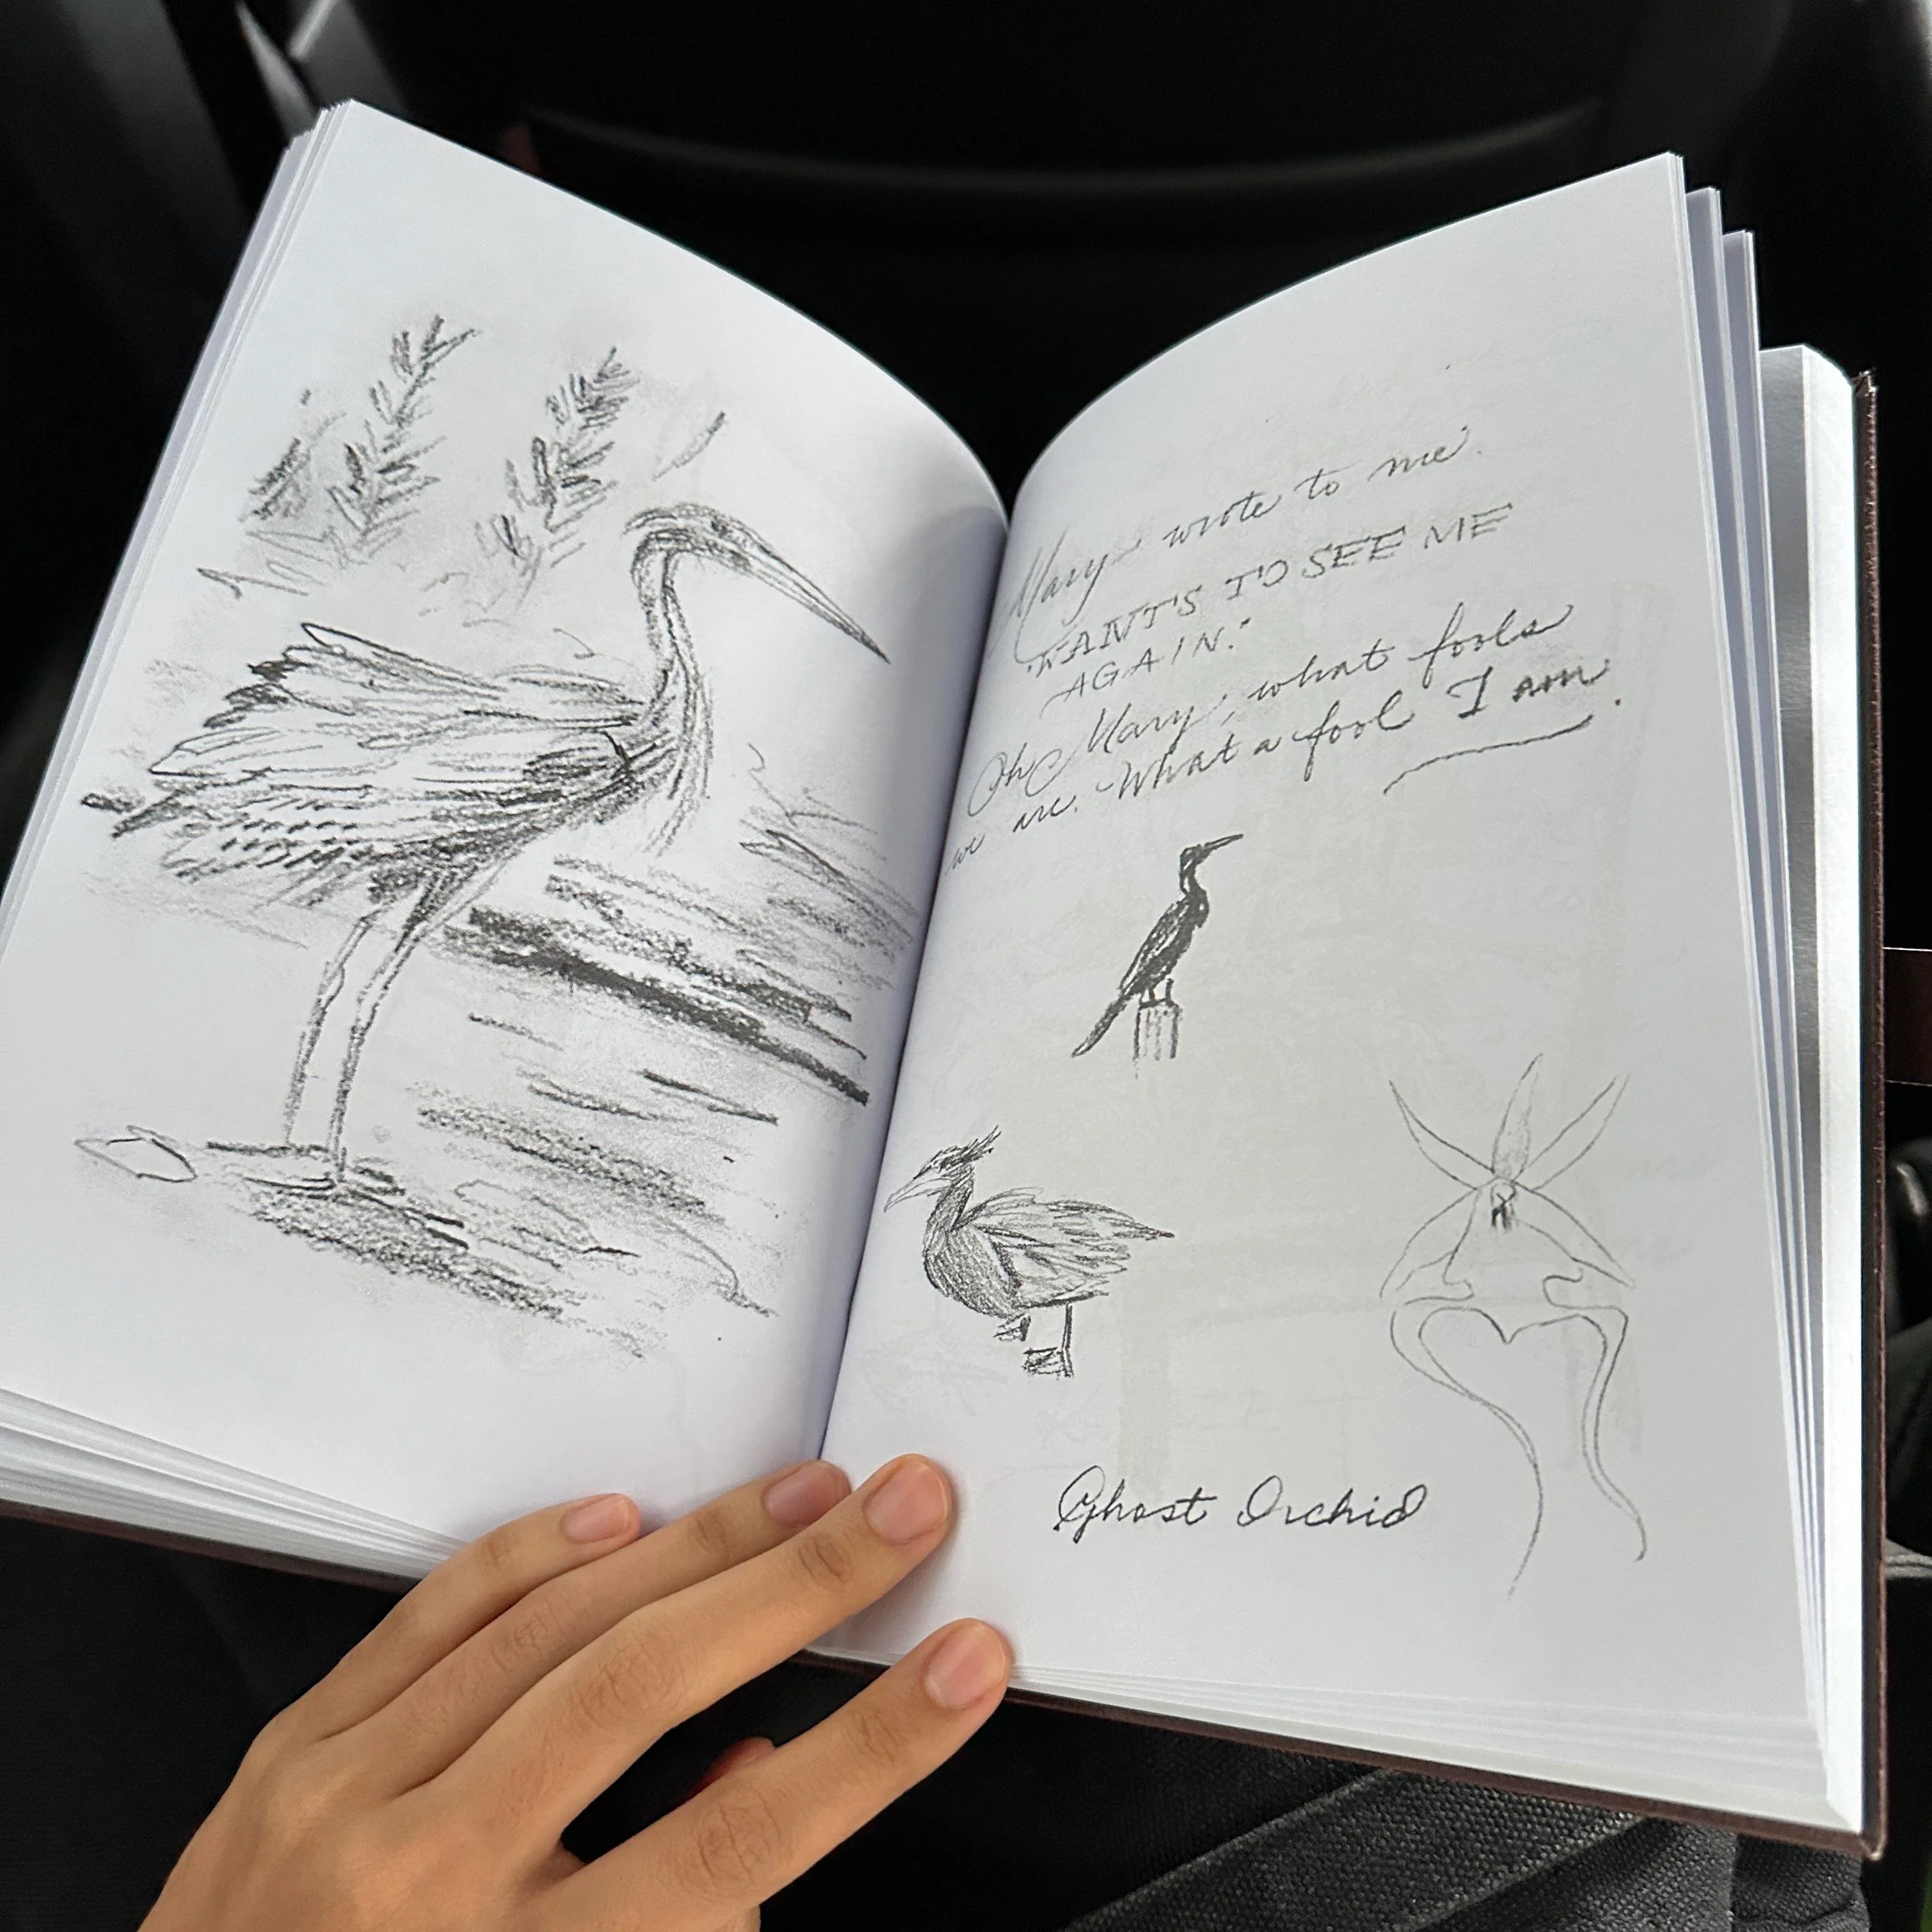 Mary wrote to me.
"WANT'S TO SEE ME
AGAIN."
Oh Mary, what fools
we are. What a fool I am.
Ghost Orchid